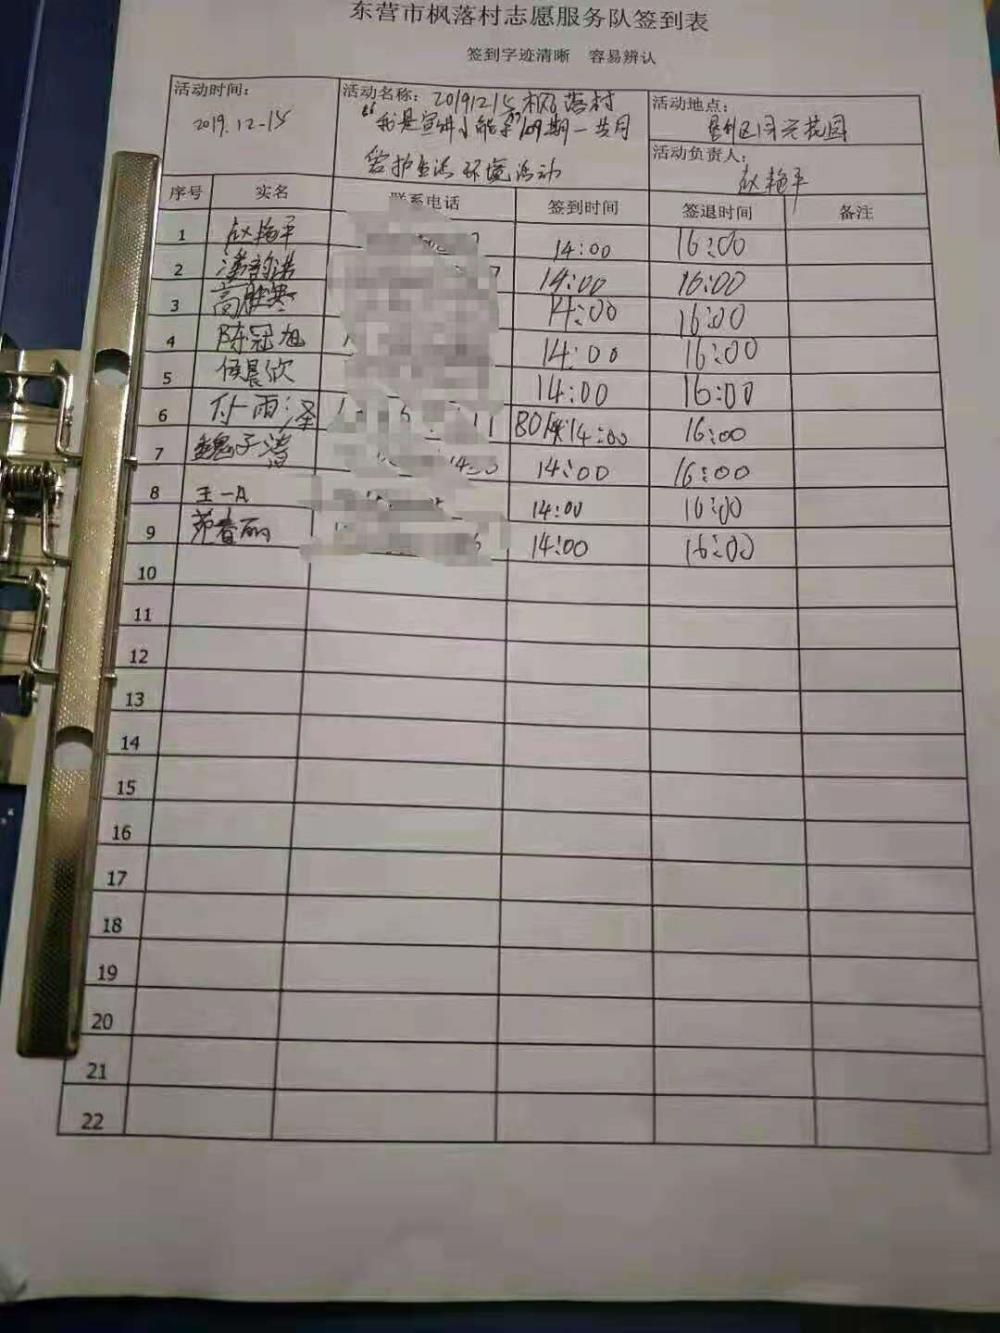 东营市枫落村志愿服务队签到表
签到字迹清晰 容易辨认
活动时间：
2019.12-15
活动名称：20191215枫落村
“我是宣讲小能手”109期一共同
管护生活环境活动
活动地点：
垦利区同兴花园
活动负责人：
赵艳平
序号 实名 联系电话 签到时间 签退时间 备注
1 赵艳平 14:00 16:00
2 14:00 16:00
3 14:00 16:00
4 陈冠旭 14:00 16:00
5 侯晨欣 14:00 16:00
6 付雨泽 14:00 16:00
7 魏子 14:00 16:00
8 王一 14:00 16:00
9 春丽 14:00 16:00
10
11
12
13
14
15
16
17
18
19
20
21
22